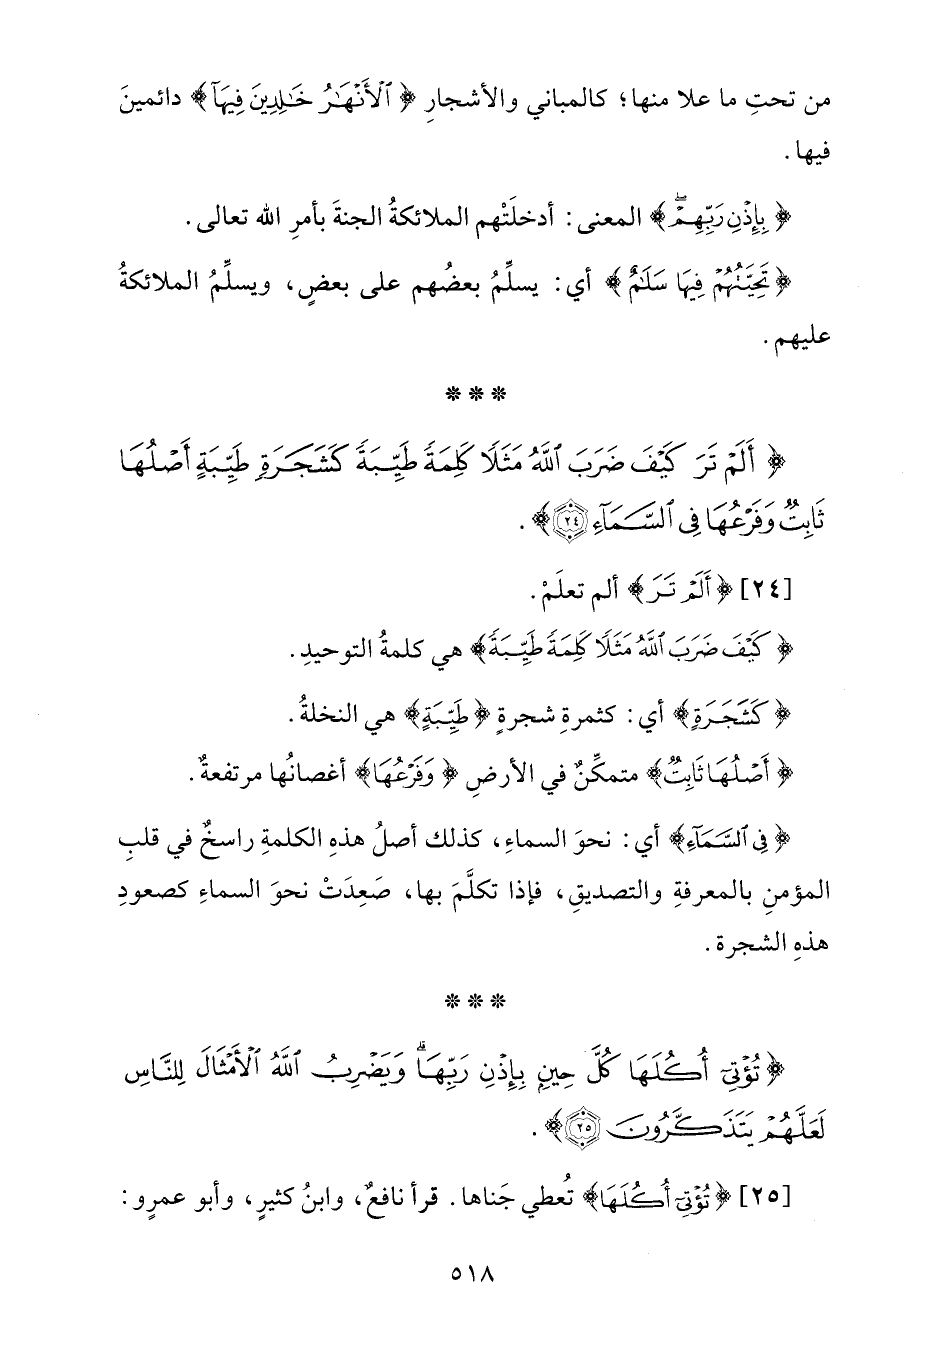 من تحتِ ما علا منها؛ كالمباني والأشجارِ ﴿ ٱلْأَنْهَٰرُ خَٰلِدِينَ فِيهَآ﴾ دائمينَ
فيها.
﴿ بِإِذْنِ رَبِّهِمْ ۖ﴾ المعنى: أدخلَتْهم الملائكةُ الجنةَ بأمرِ الله تعالى.
﴿ تَحِيَّتُهُمْ فِيهَا سَلَٰمٌ ﴾ أي: يسلِّمُ بعضُهم على بعضٍ، ويسلِّمُ الملائكةُ
عليهم.
* * *
﴿ أَلَمْ تَرَ كَيْفَ ضَرَبَ ٱللَّهُ مَثَلًا كَلِمَةً طَيِّبَةً كَشَجَرَةٍ طَيِّبَةٍ أَصْلُهَا
ثَابِتٌ وَفَرْعُهَا فِى ٱلسَّمَآءِ ٢٤﴾.
[٢٤] ﴿ أَلَمْ تَرَ ﴾ ألم تعلَمْ.
﴿ كَيْفَ ضَرَبَ ٱللَّهُ مَثَلًا كَلِمَةً طَيِّبَةً﴾ هي كلمةُ التوحيدِ.
﴿ كَشَجَرَةٍ﴾ أي: كثمرةِ شجرةٍ ﴿ طَيِّبَةٍ﴾ هي النخلةُ.
﴿ أَصْلُهَا ثَابِتٌ﴾ متمكِّنٌ في الأرضِ ﴿ وَفَرْعُهَا﴾ أغصانُها مرتفعةٌ.
﴿ فِى ٱلسَّمَآءِ﴾ أي: نحوَ السماءِ، كذلك أصلُ هذهِ الكلمةِ راسخٌ في قلبِ
المؤمنِ بالمعرفةِ والتصديقِ، فإذا تكلَّمَ بها، صَعِدَتْ نحوَ السماءِ كصعودِ
هذهِ الشجرة.
* * *
﴿ تُؤْتِىٓ أُكُلَهَا كُلَّ حِينٍ بِإِذْنِ رَبِّهَا ۗ وَيَضْرِبُ ٱللَّهُ ٱلْأَمْثَالَ لِلنَّاسِ
لَعَلَّهُمْ يَتَذَكَّرُونَ ٢٥﴾.
[٢٥] ﴿ تُؤْتِىٓ أُكُلَهَا﴾ تُعطي جَناها. قرأ نافعٌ، وابنُ كثيرٍ، وأبو عمرٍو:
٥١٨